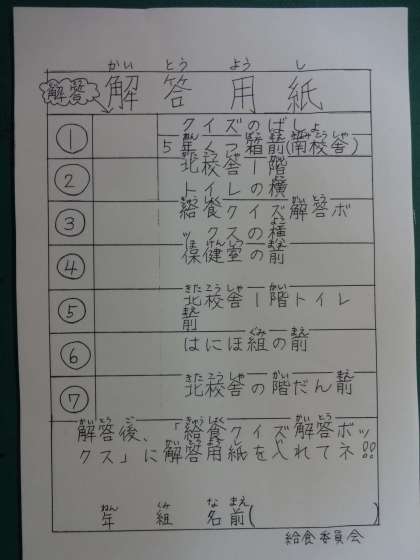 かい とう よう し
解答 解答用紙
クイズのばしょ
① 5年くつ箱前(南校舎)
② 北校舎1階
トイレの横
③ 給食クイズ解答ボ
ックスの横
④ 保健室の前
⑤ 北校舎1階トイレ
前
⑥ はにほ組の前
⑦ 北校舎の階だん前
解答後、「給食クイズ解答ボッ
クス」に解答用紙を入れてネ!!
年 組 名前( )
給食委員会